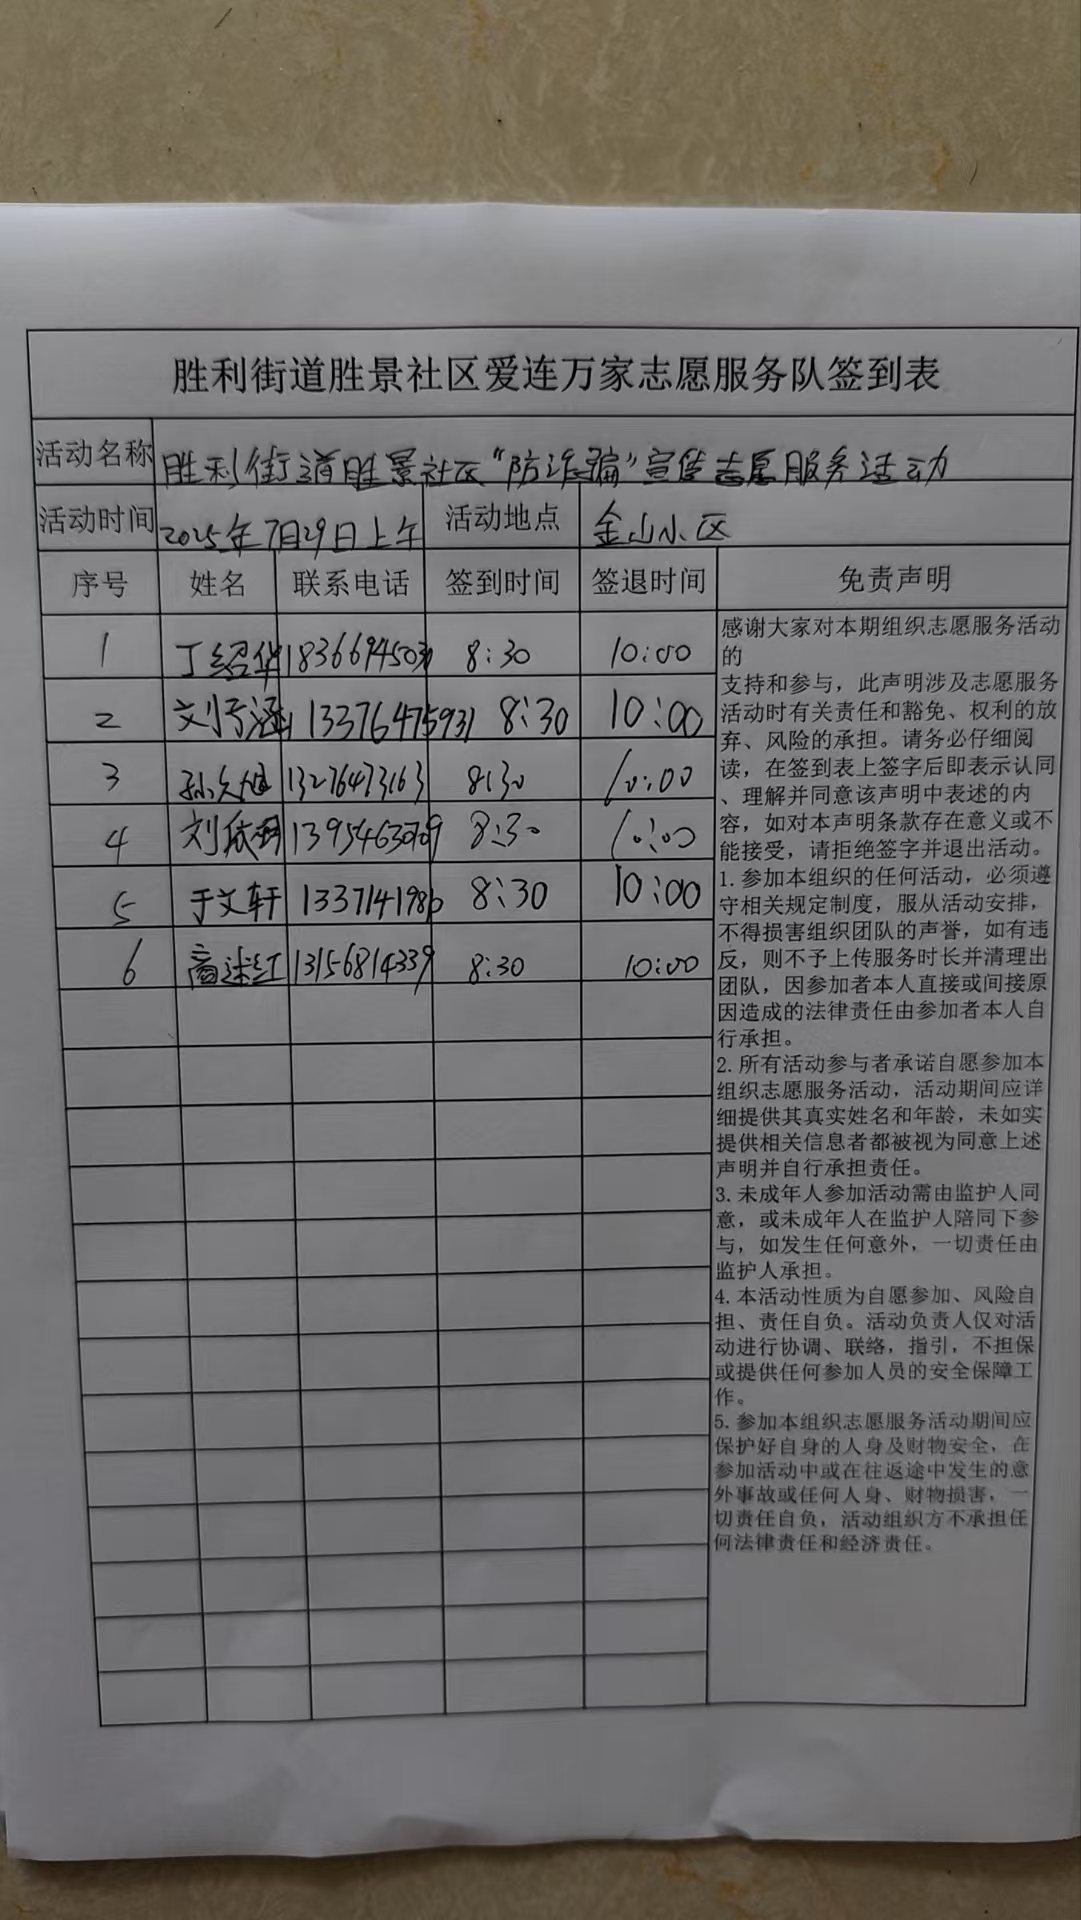 胜利街道胜景社区爱连万家志愿服务队签到表
活动名称 胜利街道胜景社区“防诈骗”宣传志愿服务活动
活动时间 2025年7月29日上午 活动地点 金山小区
序号 姓名 联系电话 签到时间 签退时间 免责声明
1 丁绍华 8:30 10:00
2 13376475931 8:30 10:00
3 13276473163 8:30 10:00
4 8:30 10:00
5 于文轩 8:30 10:00
6 13156814339 8:30 10:00
感谢大家对本期组织志愿服务活动
的
支持和参与，此声明涉及志愿服务
活动时有关责任和豁免、权利的放
弃、风险的承担。请务必仔细阅
读，在签到表上签字后即表示认同
、理解并同意该声明中表述的内
容，如对本声明条款存在意义或不
能接受，请拒绝签字并退出活动。
1. 参加本组织的任何活动，必须遵
守相关规定制度，服从活动安排，
不得损害组织团队的声誉，如有违
反，则不予上传服务时长并清理出
团队，因参加者本人直接或间接原
因造成的法律责任由参加者本人自
行承担。
2. 所有活动参与者承诺自愿参加本
组织志愿服务活动，活动期间应详
细提供其真实姓名和年龄，未如实
提供相关信息者都被视为同意上述
声明并自行承担责任。
3. 未成年人参加活动需由监护人同
意，或未成年人在监护人陪同下参
与，如发生任何意外，一切责任由
监护人承担。
4. 本活动性质为自愿参加、风险自
担、责任自负。活动负责人仅对活
动进行协调、联络，指引，不担保
或提供任何参加人员的安全保障工
作。
5. 参加本组织志愿服务活动期间应
保护好自身的人身及财物安全，在
参加活动中或在往返途中发生的意
外事故或任何人身、财物损害，一
切责任自负，活动组织方不承担任
何法律责任和经济责任。